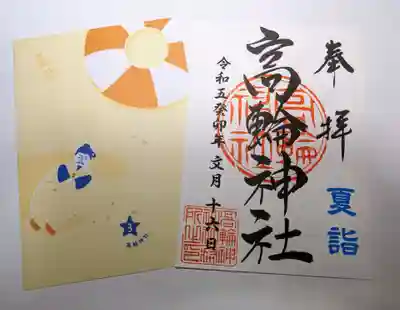 奉拝
夏詣
高輪神社
令和五癸卯年 文月 十六日
3
高輪神社